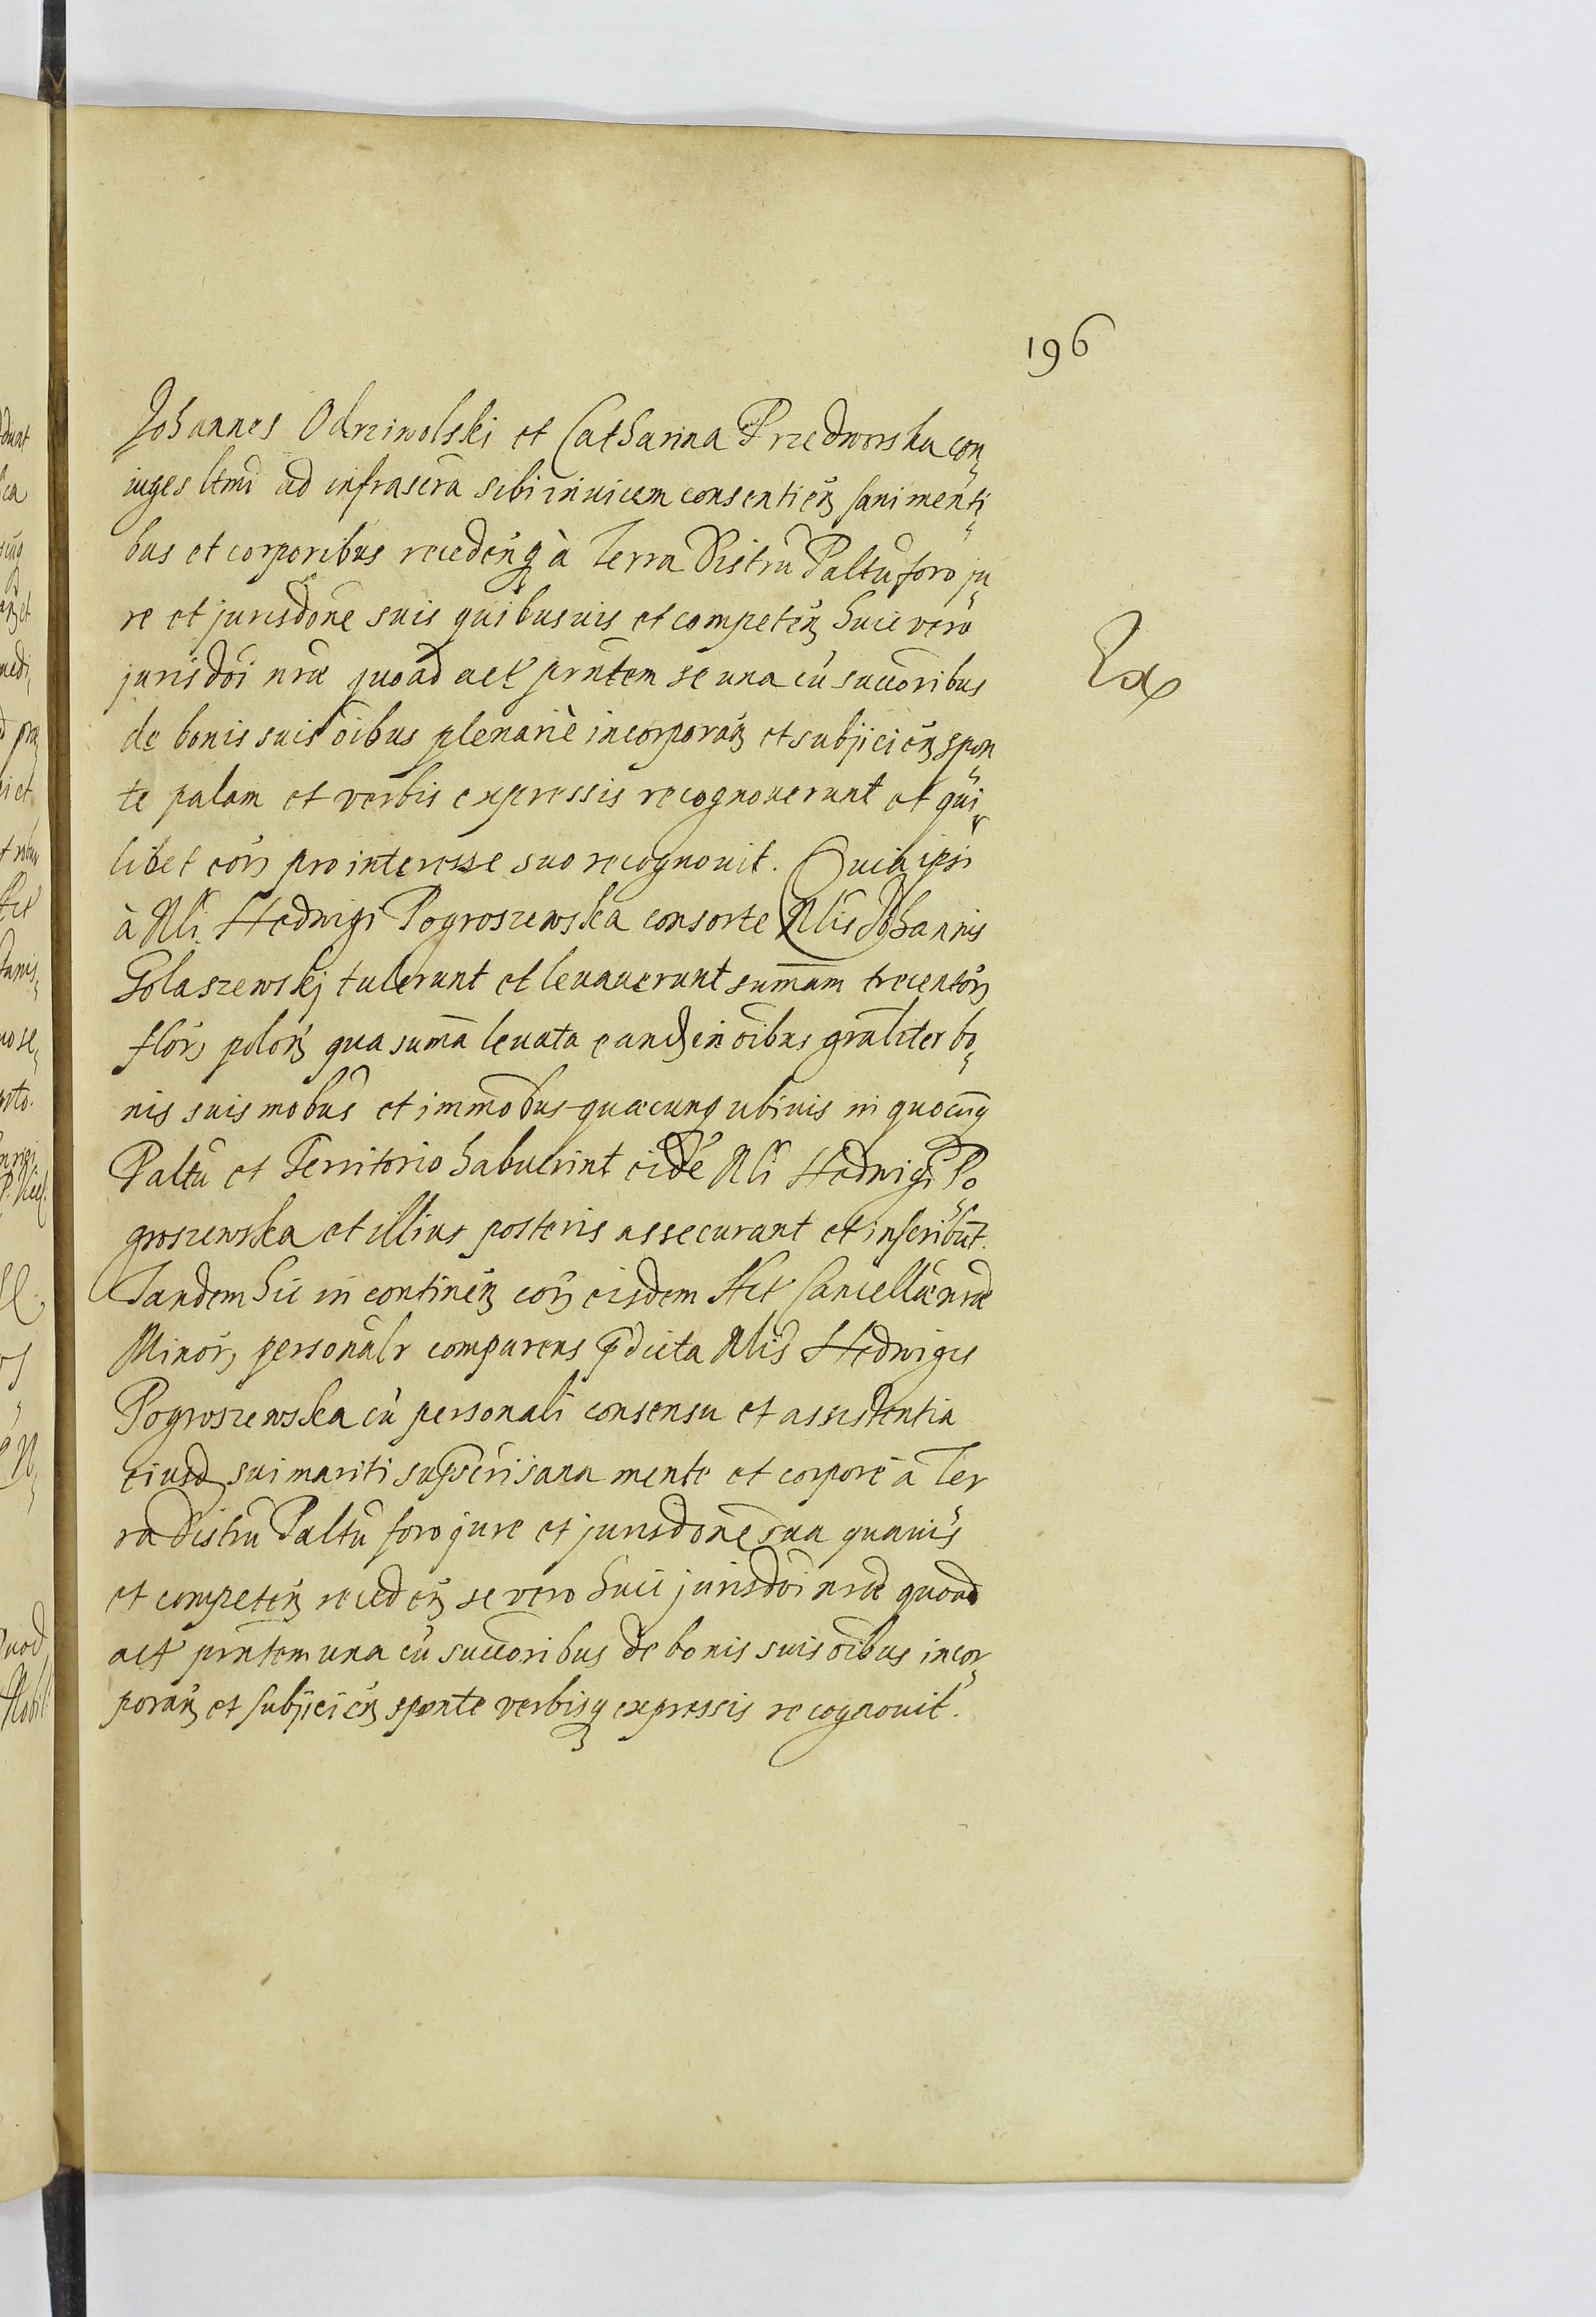 196
Johannes Odrziwolski et Catharina Przedworska con„
iuges ltmi ad infrascra sibi inuicem consentien̄ sani menti„
bus et corporibus recedenq̄ à Terra Distru Paltu foro ju„
re et jurisdone suis quibusuis et competen̄ huic vero
Ex
jurisdoi nræ quoad act prntem se una cũ succoribus
de bonis suis oĩbus plenariè incorporan̄ et subjicien̄ spon„
te palam et verbis expressis recognouerunt et qui„
libet eor̃ pro interesse suo recognouit. Quia ipsi
à Nli Hedwigi Pogroszewska consorte Nlis Johannis
Golaszewskj tulerunt et leuauerunt sum̄am trecentor̃
flor̃ polon̄ qua sum̄a leuata eand in oĩbus gnraliter bo„
nis suis mobus et immobus quæcunq̄ ubiuis in quocunq̄
Paltu et Territorio habuerint eidẽ Nli Hedwigi Po„
groszewska et illius posteris assecurant et inscribũt.
Tandem hic in continen̄ cor̃ eisdem Act Cancellæ nræ
Minor̃ personalr comparens p̃dicta Nlis Hedwigis
Pogroszewska cũ personali consensu et assistentia
eiusd sui mariti supscri sana mente et corpore à Ter
ra Distru Paltu foro jure et jurisdone sua quauis
et competen̄ receden̄ se vero huic jurisdoi nræ quoad
act prntem una cũ succoribus de bonis suis oĩbus incor„
poran̄ et subjicien̄ sponte verbisq̄ expressis recognouit.